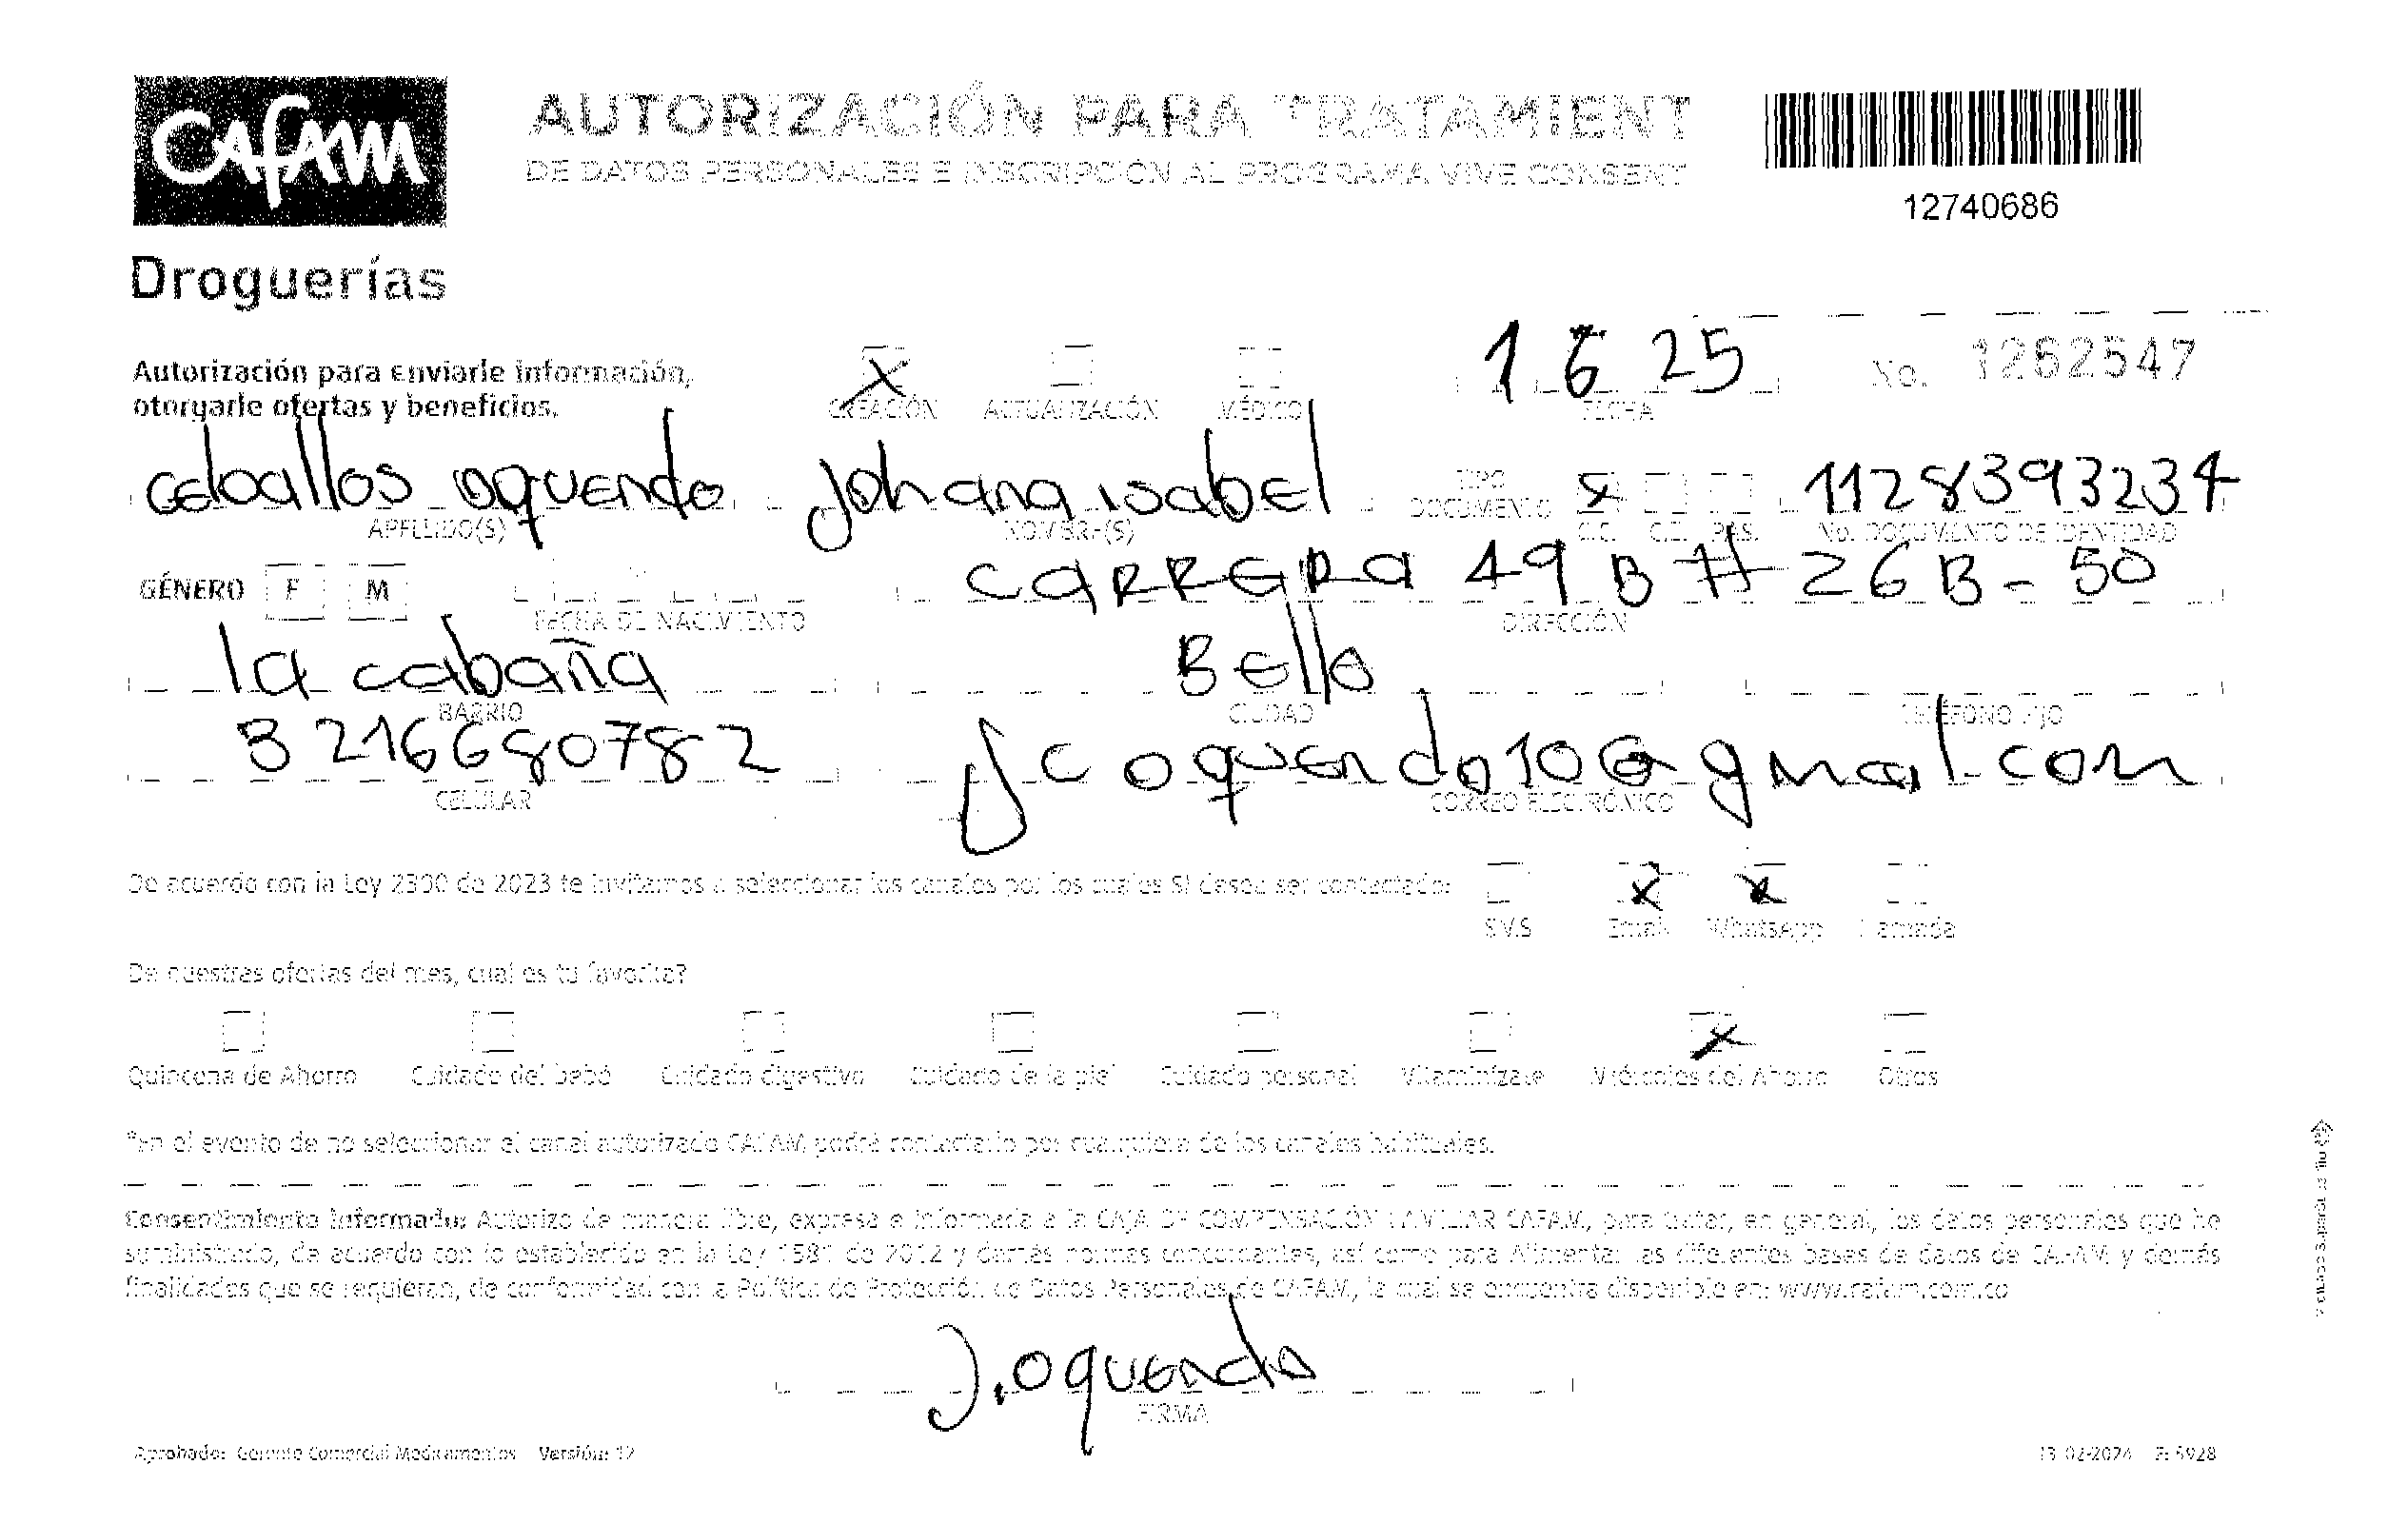 CAfAM
Droguerías
AUTORIZACIÓN PARA TRATAMIENT
DE DATOS PERSONALES E INSCRIPCIÓN AL PROGRAMA VIVE CONSENT
12740686
Autorización para enviarle información,
otorgarle ofertas y beneficios.
CREACIÓN ACTUALIZACIÓN MÉDICO
1 6 25
FECHA
No. 1262547
Ceballos oquendo Johana isabel
APELLIDO(S) NOMBRE(S)
TIPO DOCUMENTO X C.C. C.E. PAS.
1128393234
No. DOCUMENTO DE IDENTIDAD
GÉNERO F M
FECHA DE NACIMIENTO
CARRERA 49 B # 26 B - 50
DIRECCIÓN
la cabaña Bello
BARRIO CIUDAD TELÉFONO FIJO
3216680782 jcoquendo10@gmail.com
CELULAR CORREO ELECTRÓNICO
De acuerdo con la Ley 2300 de 2023 te invitamos a seleccionar los canales por los cuales SI desea ser contactado:
SMS Email WhatsApp Llamada
De nuestras ofertas del mes, cual es tu favorita?
Quincena de Ahorro Cuidado del bebé Cuidado digestivo Cuidado de la piel Cuidado personal Vitaminízate Miércoles del Ahorro Otros
*En el evento de no seleccionar el canal autorizado CAFAM podrá contactarlo por cualquiera de los canales habituales.
Consentimiento informado: Autorizo de manera libre, expresa e informada a la CAJA DE COMPENSACIÓN FAMILIAR CAFAM, para tratar, en general, los datos personales que he
suministrado, de acuerdo con lo establecido en la Ley 1581 de 2012 y demás normas concordantes, así como para Alimentar las diferentes bases de datos de CAFAM y demás
finalidades que se requieran, de conformidad con la Política de Protección de Datos Personales de CAFAM, la cual se encuentra disponible en: www.cafam.com.co
J.oquendo
FIRMA
Aprobado: Gerente Comercial Medicamentos Versión: 12
13-02-2024 F: 5928